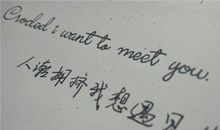 Croded i want to meet you.
人潮拥挤我想遇见